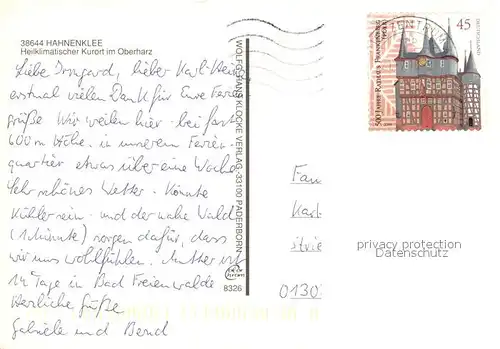 38644 HAHNENKLEE
Heilklimatischer Kurort im Oberharz
Liebe Irmgard, lieber Karl-Heinz
erstmal vielen Dank für Eure Ferien
grüße. Wir weilen hier bei fast
600 m Höhe in unserem Ferien-
quartier etwas über eine Woche
Sehr schönes Wetter. Könnte
kühler sein und der nahe Wald
(1 Minute) sorgen dafür, dass
wir uns wohlfühlen. Mutter ist
14 Tage in Bad Freienwalde
Herzliche Grüße
Gabriele und Bernd
WOLFGANG KLOCKE VERLAG · 33100 PADERBORN
8326
45
DEUTSCHLAND
500 JAHRE RATHAUS FRANKENBERG
Fam
Karl
0130
privacy protection
Datenschutz